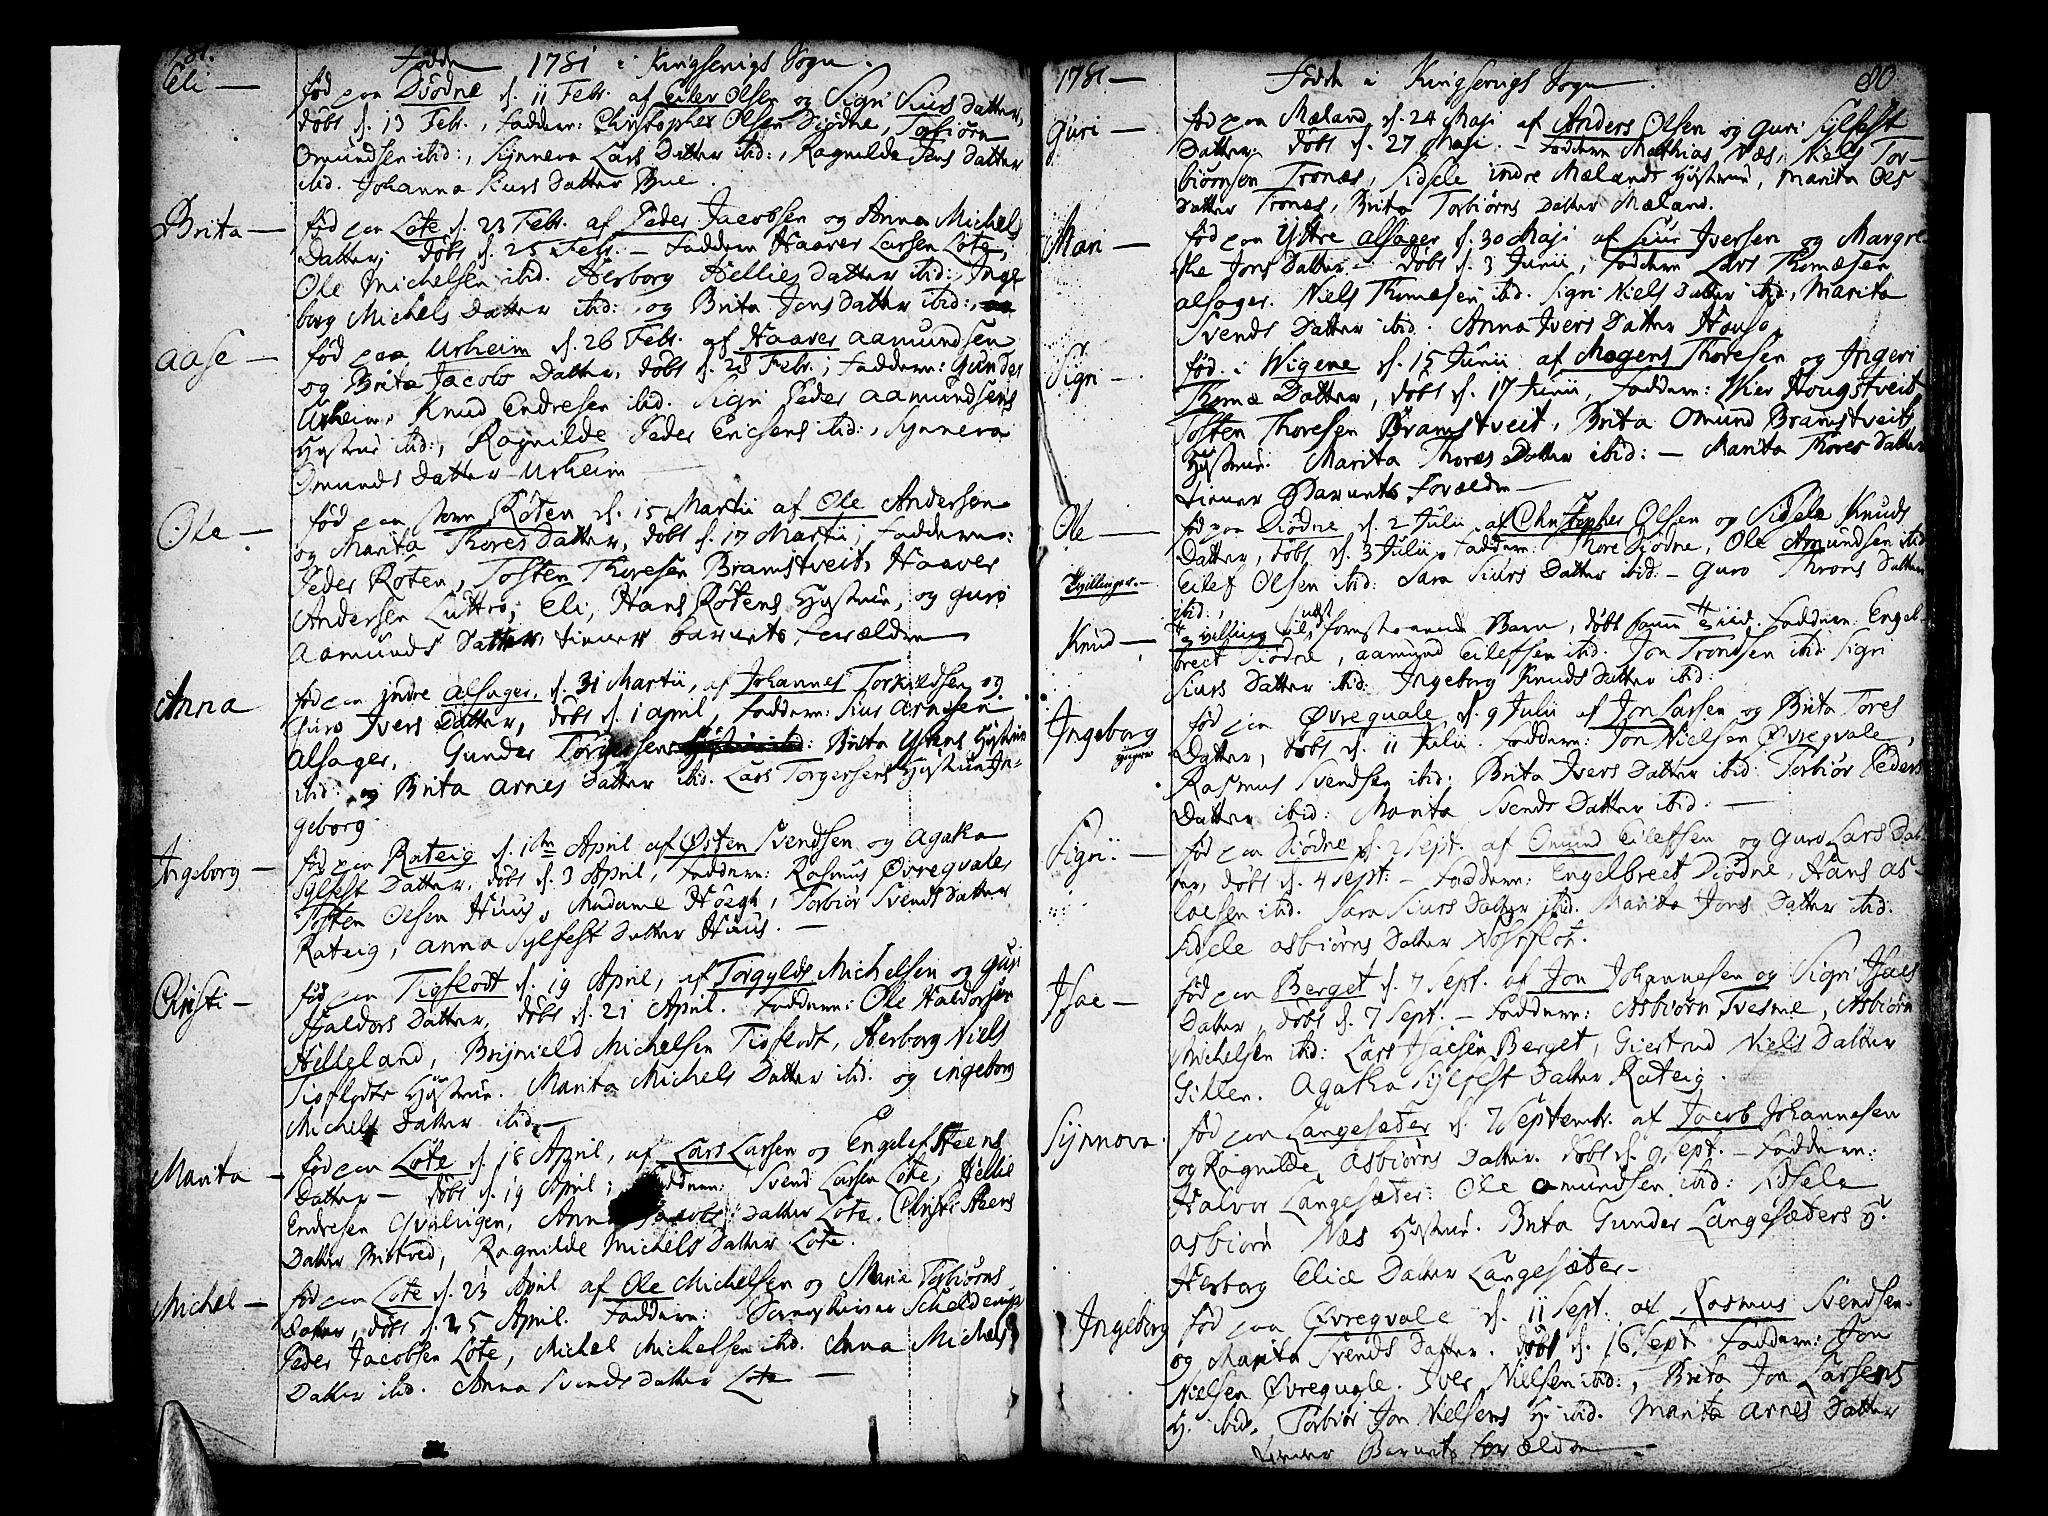 1781.
Fødde 1781 i Kingservigs Sogn.
Eli — fød paa Diødne d. 11 Febr. af Eilev Olsen og Sigri Siurs Datter,
døbt d. 13 Febr., Faddern: Christopher Olsen Diødne, Torbiørn
Omundsen ibid:, Synneva Lars Datter ibid:, Ragnilde Jens Datter
ibid. Johanna Siurs Datter Bue.
Brita — fød paa Lote d. 23 Febr. af Peder Jacobsen og Anna Michels
Datter, døbt d. 25 Febr. — Faddern Haaver Larsen Lote,
Ole Michelsen ibid. Herborg Hellies Datter ibid:, Inge
borg Michels Datter ibid:, og Brita Jons Datter ibid:,
Aase — fød paa Urheim d. 26 Febr. af Haaver Aamundsen
og Brita Jacobs Datter, døbt d. 28 Febr., Faddern: Gunder
Urheim, Knud Endresen ibid. Sigri Peder Aamundsens
Hustrue ibid:, Ragnilde Peder Ericsens ibid:, Synneva
Omunds Datter Urheim —
Ole — fød paa Røten d. 15 Martii af Ole Andersen
og Marita Thores Datter, døbt d. 17 Martii, Faddern:
Peder Røten, Tosten Thoresen Bramstveit, Haaver
Andersen Luttro, Eli, Hans Røtens Hustrue, og Guro
Aamunds Datter, tiener barnets Forældre
Anna fød paa indre Alsager, d. 31 Martii, af Johannes Torkildsen og
Guro Ivers Datter, døbt d. 1 April, Faddern: Siur Arnesen
Alsager, Gunder Torgersens Brita Hustrue
ibid: og Brita Arnes Datter ibid. Lars Torgersens Hustrue In-
geborg.
Ingeborg — fød paa Rateig d. 1ste April af Østen Svendsen og Agata
Sylfest Datter, døbt d. 3 April, Faddern: Rasmus Øvreqvale,
Tosten Olsen Huus, Madame Høegh, Torbiør Svends Datter
Rateig, Anna Sylfest Datter Huus. —
Christi — fød paa Tioflodt d. 19 April, af Torgylds Michelsen og Guri
Haldors Datter, døbt d. 21 April. Faddern: Ole Haldorsen
Helleland, Brynield Michelsen Tioflodt, Herborg Niels
Tioflodts Hustrue. Marita Michels Datter ibid. og Ingeborg
Michels Datter ibid. —
Marita — fød paa Lote d. 18 April, af Lars Larsen og Engelef Steens
Datter — døbt d. 19 April; Faddern: Svend Larsen Lote, Hellie
Endresen Qvalvigen, Anna Jacobs Datter Lote. Christi Steens
Datter Bristved, Ragnilde Michels Datter Lote.
Michel — fød paa Lote d. 23 April af Ole Michelsen og Marie Torbiørns
Datter, døbt d. 25 April. Faddern:
Peder Jacobsen Lote, Michel Michelsen ibid. Anna Michels
Datter ibid. Anna Svends Datter Lote —
1781 — Fødde i Kingservigs Sogn. 80.
Guri — fød paa Mæland d. 24 Maji af Anders Olsen og Guri Sylfest
Datter, døbt d. 27 Maji. — Faddern Matthias Næs, Niels Tor-
biørnsen Tronæs, Sidsele indre Mælands Hustrue, Marita Ols
Datter Tronæs, Brita Torbiørns Datter Mæland.
Mari — fød paa Ystre Alsager d. 30 Maji af Siur Iversen og Margre
the Jons Datter — døbt d. 3 Junii, Faddern Lars Thomæsen
Alsager. Niels Thomæsen ibid. Sigri Niels Datter ibid:, Marita
Svends Datter ibid. Anna Ivers Datter Houso.
Sigri — fød i Wigene d. 15 Junii af Mogens Thoresen og Ingeri
Thomæ Datter, døbt d. 17 Junii, Faddern: Wier Hougstveit,
Tosten Thoresen Bramstveit, Brita Omund Bramstveits
Hustrue. Marita Thores Datter ibid: — Marita Thores Datter
tiener Barnets Forældre —
Ole — fød paa Diødne d. 2 Julii af Christopher Olsen og Sidsele Knuds
Datter, døbt d. 3 Julii, Faddern: Thore Diødne, Ole Amundsen ibid
Tvillinger. — Eilef Olsen ibid: Sara Siurs Datter ibid: — Guro Throns Datter
ibid:,
Knud — Tvilling til forestaaende Barn, døbt Faddern: Engel-
breet Diødne, Aamund Eilefsen ibid. Jon Trondsen ibid. Sigri
Siurs Datter ibid: Ingeborg Knuds Datter ibid:
Ingeborg fød paa Øvreqvale d. 9 Julii af Jon Larsen og Brita Tores
Datter, døbt d. 11 Julii. Faddern: Jon Nielsen Øvreqvale,
Rasmus Svendsen ibid: Brita Ivers Datter ibid: Torbiør Peders
Datter ibid: Marita Svends Datter ibid: —
Sigri: — fød paa Diødne d. 2 Sept. af Omund Eilefsen og Guro Lars Dat-
ter, døbt d. 4 Sept: — Faddern: Engelbreet Diødne, Hans As-
lacsen ibid. Sara Siurs Datter ibid. Marita Jons Datter ibid.
Sidsele Asbiørns Datter
Isac — fød paa Berget d. 7 Sept. af Jon Johannesen og Sigri Isacs
Datter, døbt d. 7 Sept. — Faddern: Asbiørn Tvesme, Asbiørn
Michelsen ibid: Lars Isacsen Berget, Giertrud Niels Datter
Gillen. Agatha Sylfest Datter Rateig.
Synnova. fød paa Langesæter d. 7 Septembr. af Jacob Johannesen
og Ragnilde Asbiørns Datter. døbt d. 9 Sept. — Faddern:
Halvor Langesæter: Ole Omundsen ibid: Sidsele
Asbiørn Næs Hustrue. Brita Gunder Langesæters H.
Herborg Elice Datter Langesæter —
Ingeborg fød paa Øvreqvale d. 11 Sept. af Rasmus Svendsen
og Marita Svends Datter. døbt d. 16 Sept. Faddern: Jon
Nielsen Øvreqvale. Iver Nielsen ibid:, Brita Jon Larsens
H. ibid. Torbiør Jon Nielsens H. ibid. Marita Arnes Datter
tiener Barnets Forældre —